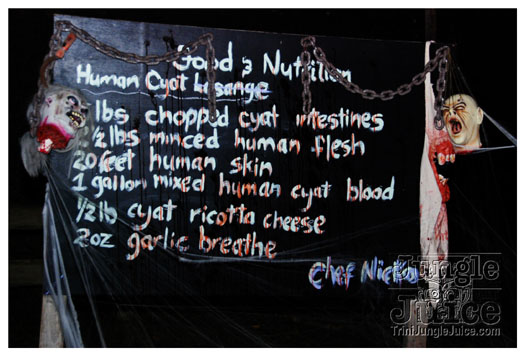 Good & Nutrition
Human Cyat Lasange
lbs chopped cyat intestines
1/2 lbs minced human flesh
20 feet human skin
1 gallon mixed human cyat blood
1/2 lb cyat ricotta cheese
2oz garlic breathe
Chef
Jungle
Juice
TriniJungleJuice.com